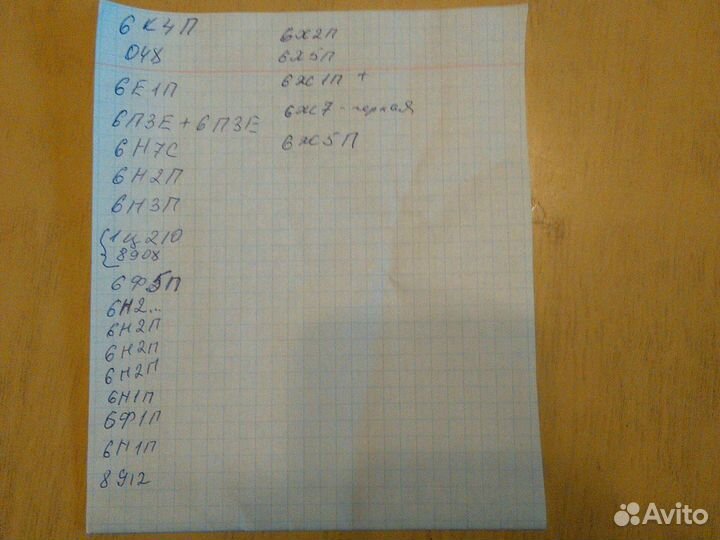 6К4П
048
6Е1П
6П3Е + 6П3Е
6Н7С
6Н2П
6Н3П
{1Ц21П
8908
6Ф5П
6Н2...
6Н2П
6Н2П
6Н2П
6Н1П
6Ф1П
6Н1П
8912
6Х2П
6Х5П
6Ж1П +
6Ж7 - черная
6Ж5П
Avito